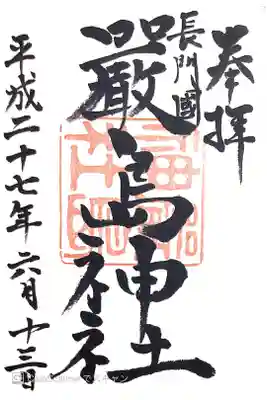 奉拝
長門國
嚴島神社
平成二十七年六月十三日